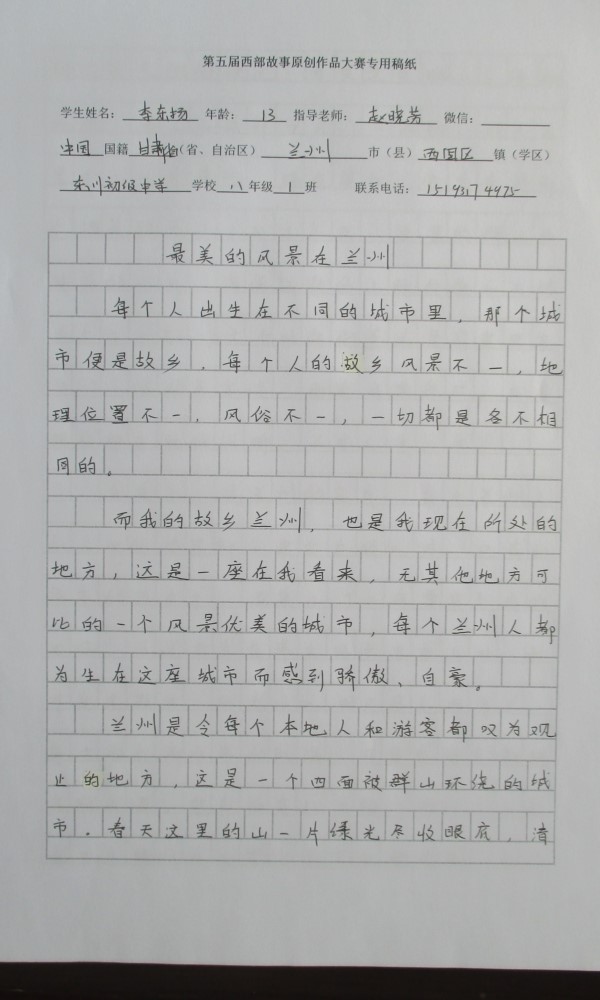 第五届西部故事原创作品大赛专用稿纸
学生姓名：李东扬 年龄：13 指导老师：赵晓芳 微信：
中国 国籍 甘肃省(省、自治区) 兰州 市(县) 西固区 镇(学区)
东川初级中学 学校 八 年级 1 班 联系电话：
最美的风景在兰州
每个人出生在不同的城市里，那个城
市便是故乡．每个人的故乡风景不一，地
理位置不一，风俗不一，一切都是各不相
同的。
而我的故乡兰州，也是我现在所处的
地方，这是一座在我看来，无其他地方可
比的一个风景优美的城市，每个兰州人都
为生在这座城市而感到骄傲、自豪。
兰州是令每个本地人和游客都叹为观
止的地方，这是一个四面被群山环绕的城
市．春天这里的山一片绿光尽收眼底，清